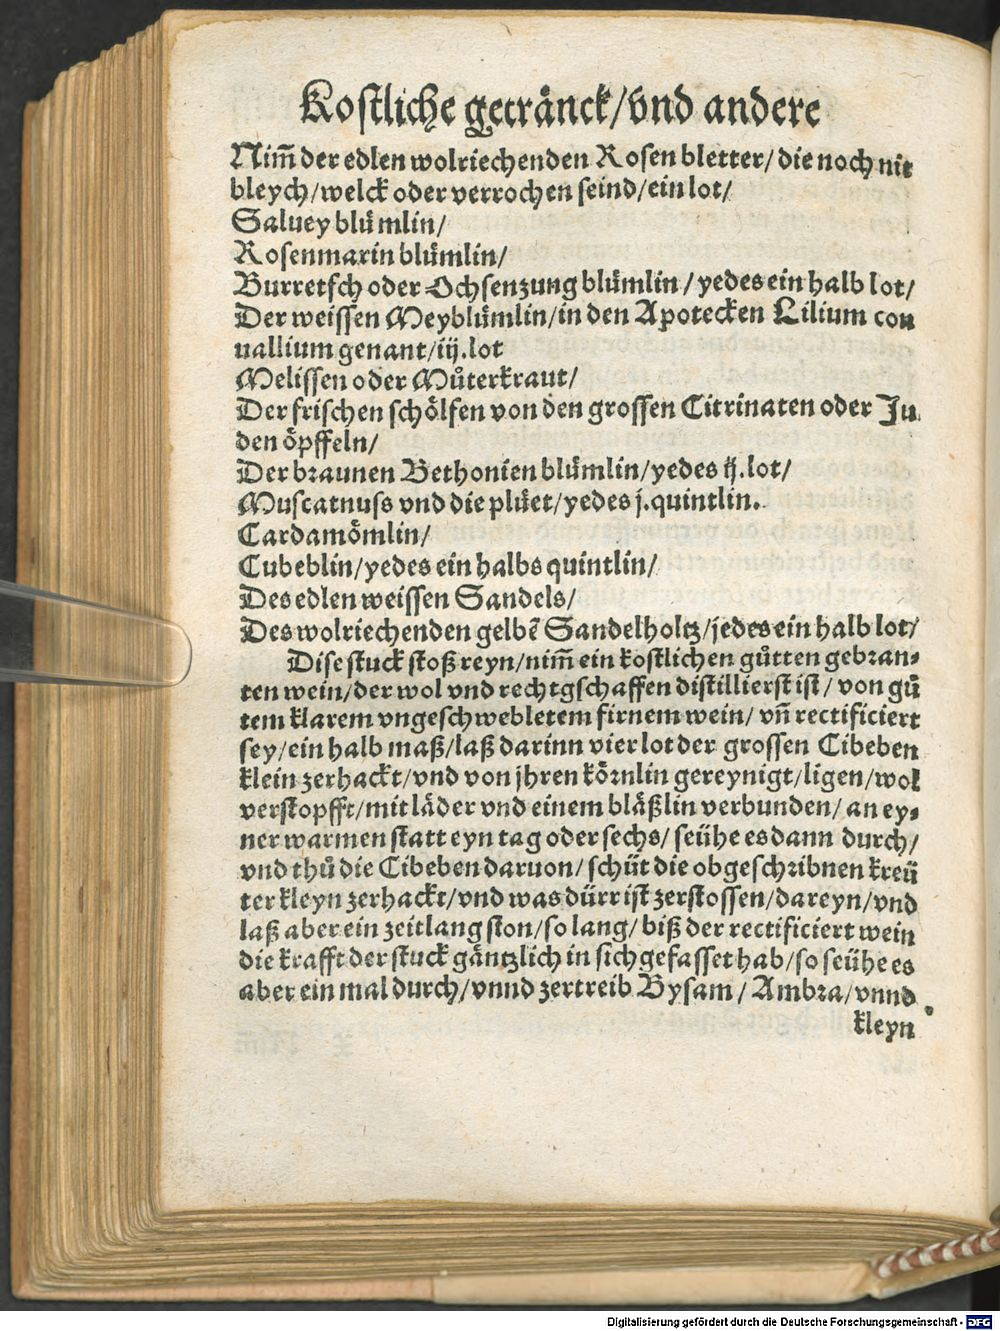 Kostliche getränck/vnd andere
Nim̃ der edlen wolriechenden Rosen bletter/die noch nit
bleych/welck oder verrochen seind/ein lot/
Saluey blůmlin/
Rosenmarin blůmlin/
Burretsch oder Ochsenzung blůmlin/yedes ein halb lot/
Der weissen Meyblůmlin/in den Apotecken Lilium con
uallium genant/iij.lot
Melissen oder Můterkraut/
Der frischen schölfen von den grossen Citrinaten oder Ju
den öpffeln/
Der braunen Bethonien blůmlin/yedes ij.lot/
Muscatnuss vnd die plůet/yedes j.quintlin.
Cardamömlin/
Cubeblin/yedes ein halbs quintlin/
Des edlen weissen Sandels/
Des wolriechenden gelbẽ Sandelholtz/jedes ein halb lot/
Dise stuck stoß reyn/nim̃ ein kostlichen gůtten gebran⸗
ten wein/der wol vnd rechtgschaffen distillierst ist/von gů
tem klarem vngeschwebletem firnem wein/vñ rectificiert
sey/ein halb maß/laß darinn vier lot der grossen Cibeben
klein zerhackt/vnd von jhren körnlin gereynigt/ligen/wol
verstopfft/mit läder vnd einem bläßlin verbunden/an ey⸗
ner warmen statt eyn tag oder sechs/seühe es dann durch/
vnd thů die Cibeben daruon/schüt die obgeschribnen kreü
ter kleyn zerhackt/vnd was dürr ist zerstossen/dareyn/vnd
laß aber ein zeitlang ston/so lang/biß der rectificiert wein
die krafft der stuck gäntzlich in sich gefasset hab/so seühe es
aber ein mal durch/vnnd zertreib Bysam/Ambra/vnnd
kleyn
Digitalisierung gefördert durch die Deutsche Forschungsgemeinschaft - DFG